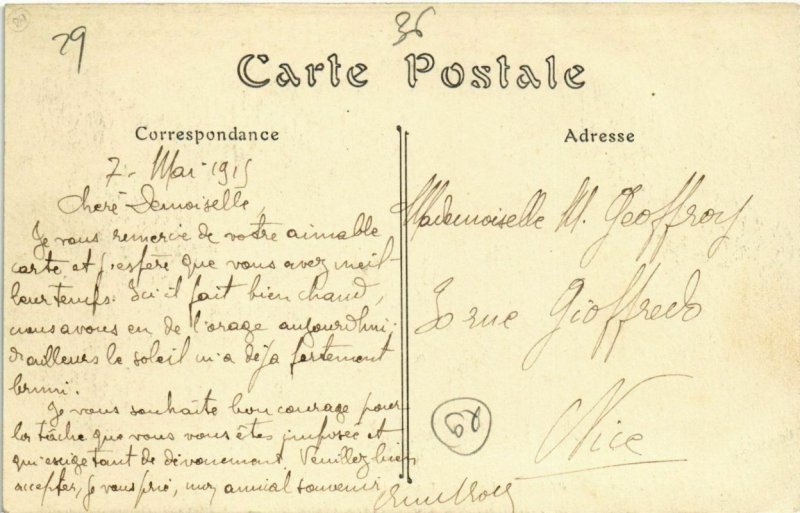 29
36
Carte Postale
Correspondance
7. Mai 1915
Chère Demoiselle,
Je vous remercie de votre aimable
carte et j'espère que vous avez meil-
leur temps. Ici il fait bien chaud,
nous avons eu de l'orage aujourd'hui;
d'ailleurs le soleil m'a déjà fortement
bruni.
Je vous souhaite bon courage pour
la tâche que vous vous êtes imposée et
qui exige tant de dévouement. Veuillez bien
accepter, je vous prie, mon amical souvenir
Adresse
Mademoiselle M. Geoffroy
30 rue Gioffredo
Nice